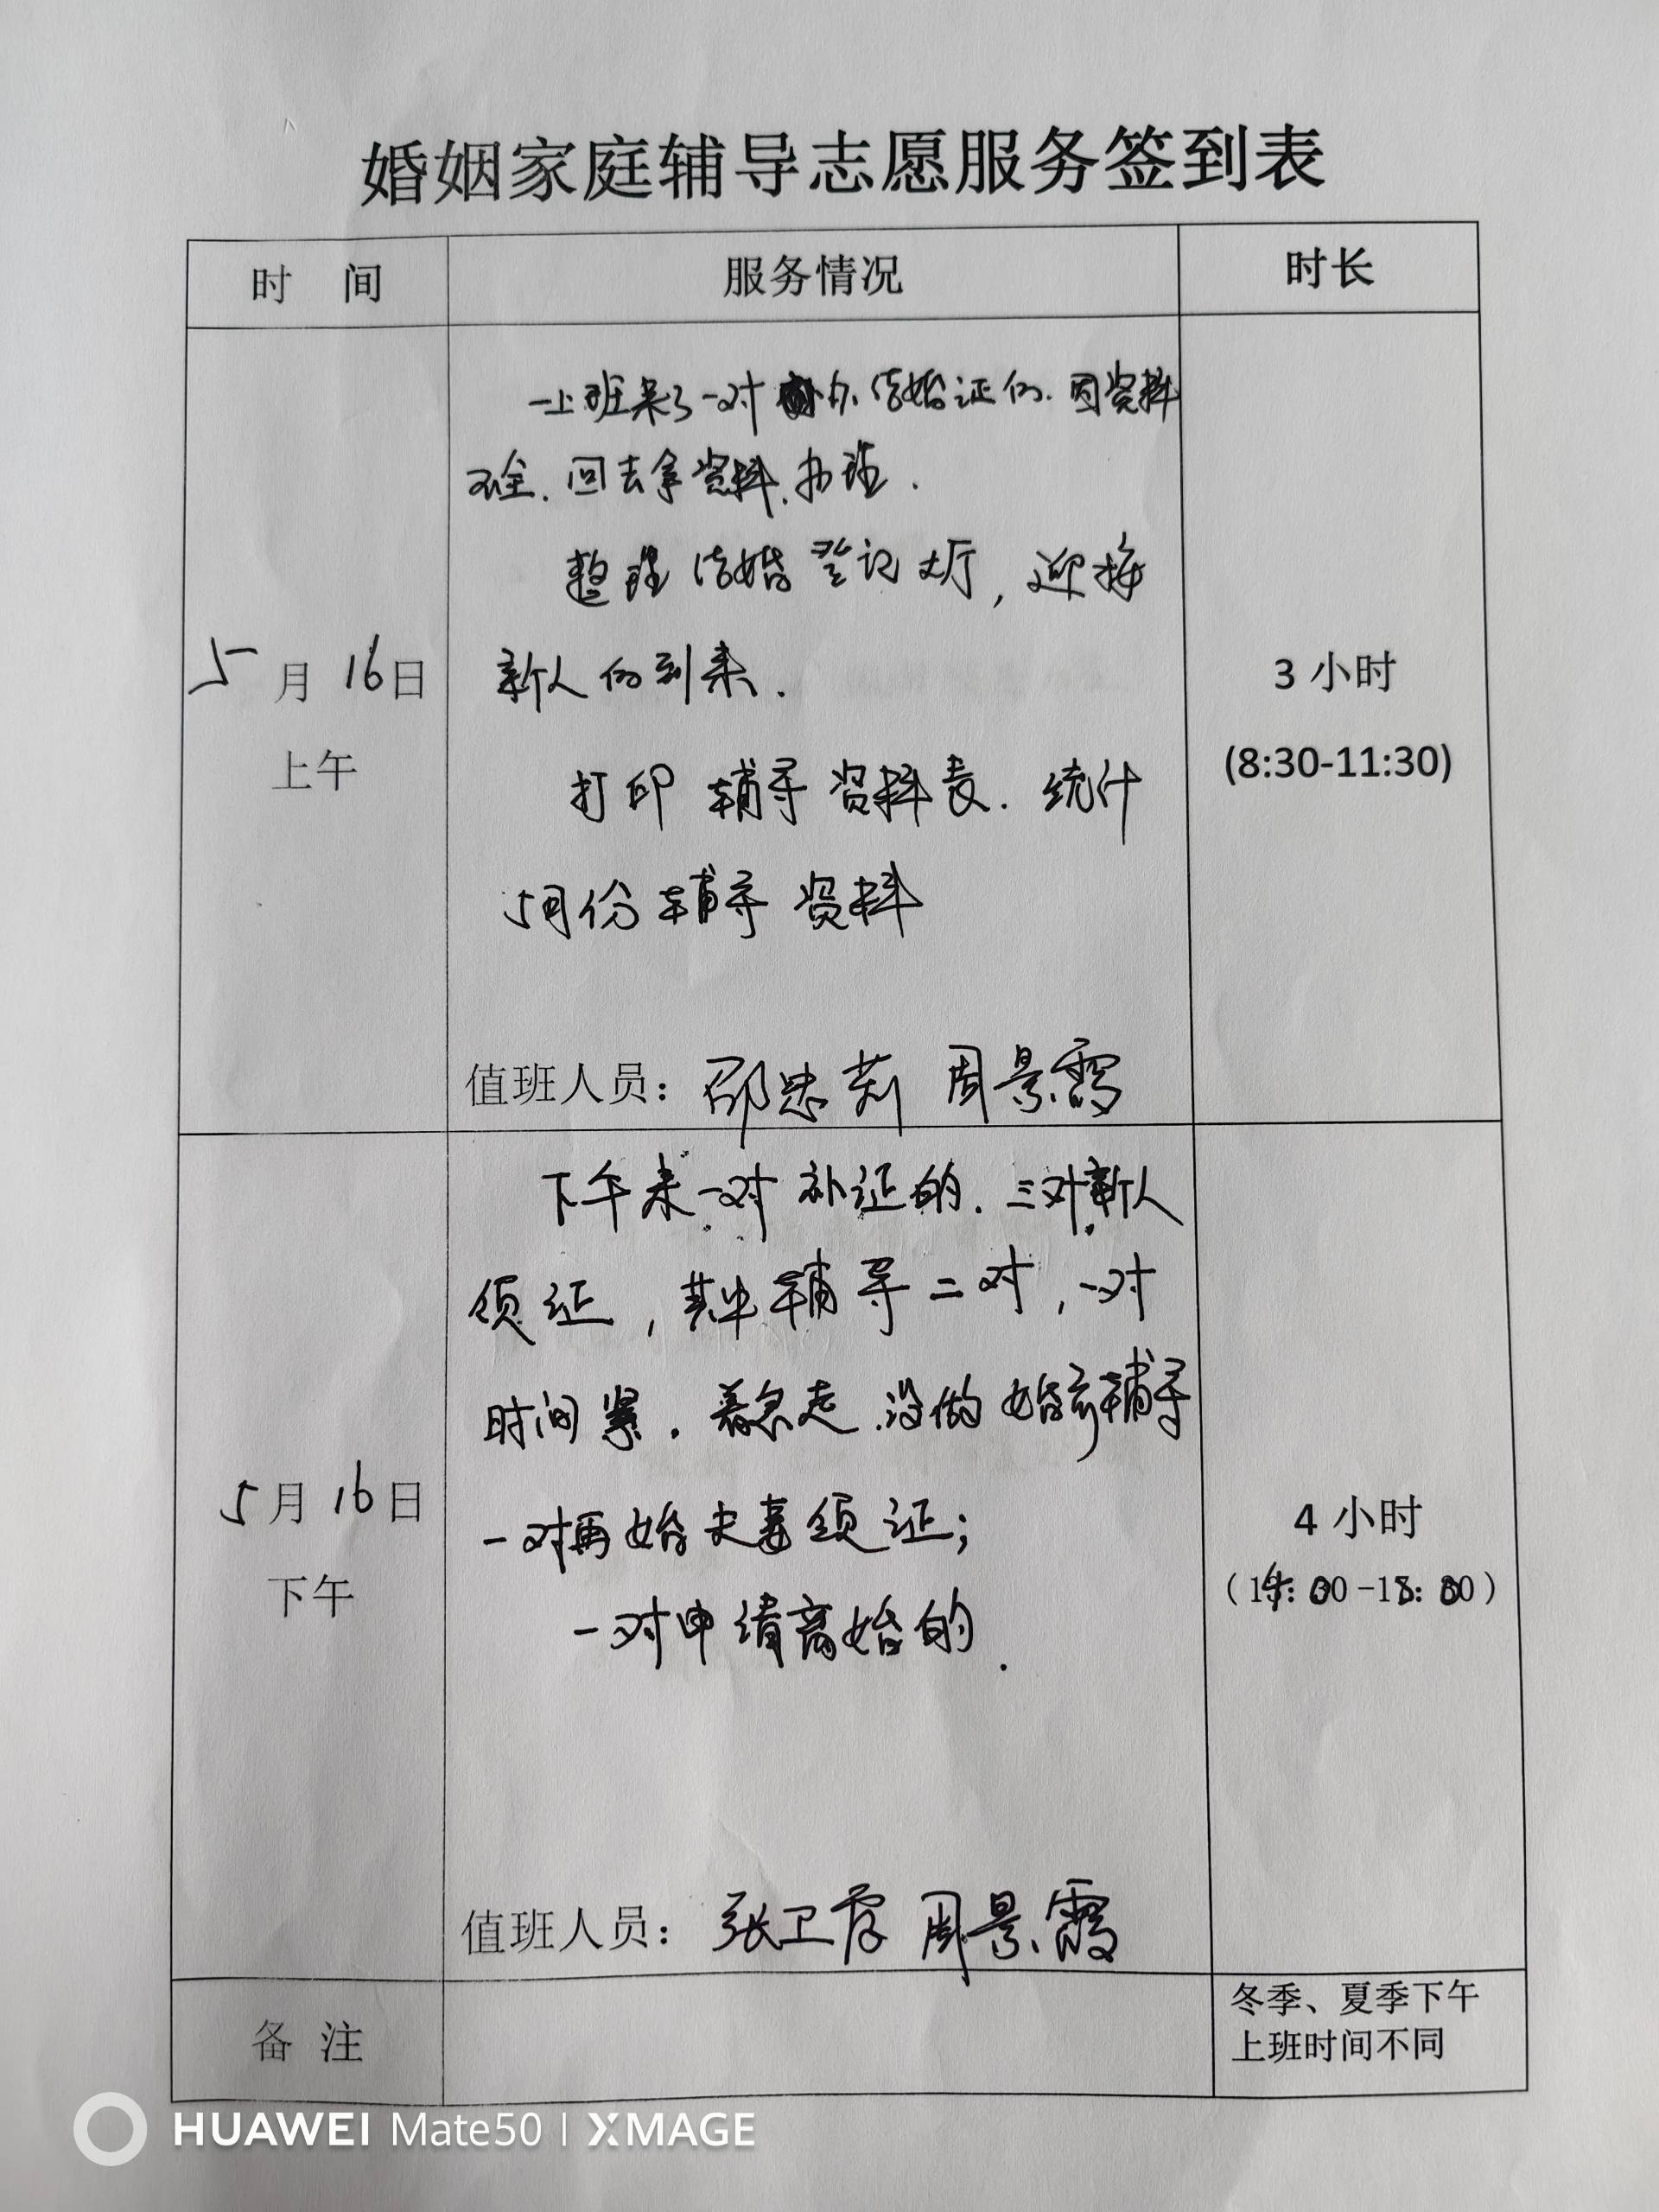 婚姻家庭辅导志愿服务签到表
时 间
服务情况
时长
一上班来了一对办结婚证的.因资料
不全.回去拿资料.办理.
整理结婚登记大厅,迎接
新人的到来.
打印辅导资料表.统计
5月份辅导资料
值班人员:邵忠莉 周景霞
5月16日
上午
3 小时
(8:30-11:30)
下午来一对补证的.三对新人
领证,其中辅导二对,一对
时间紧.着急走.没做婚前辅导
一对再婚夫妻领证;
一对申请离婚的.
值班人员:张卫霞 周景霞
5月16日
下午
4 小时
(14:00-18:00)
备 注
冬季、夏季下午
上班时间不同
HUAWEI Mate50 | XMAGE